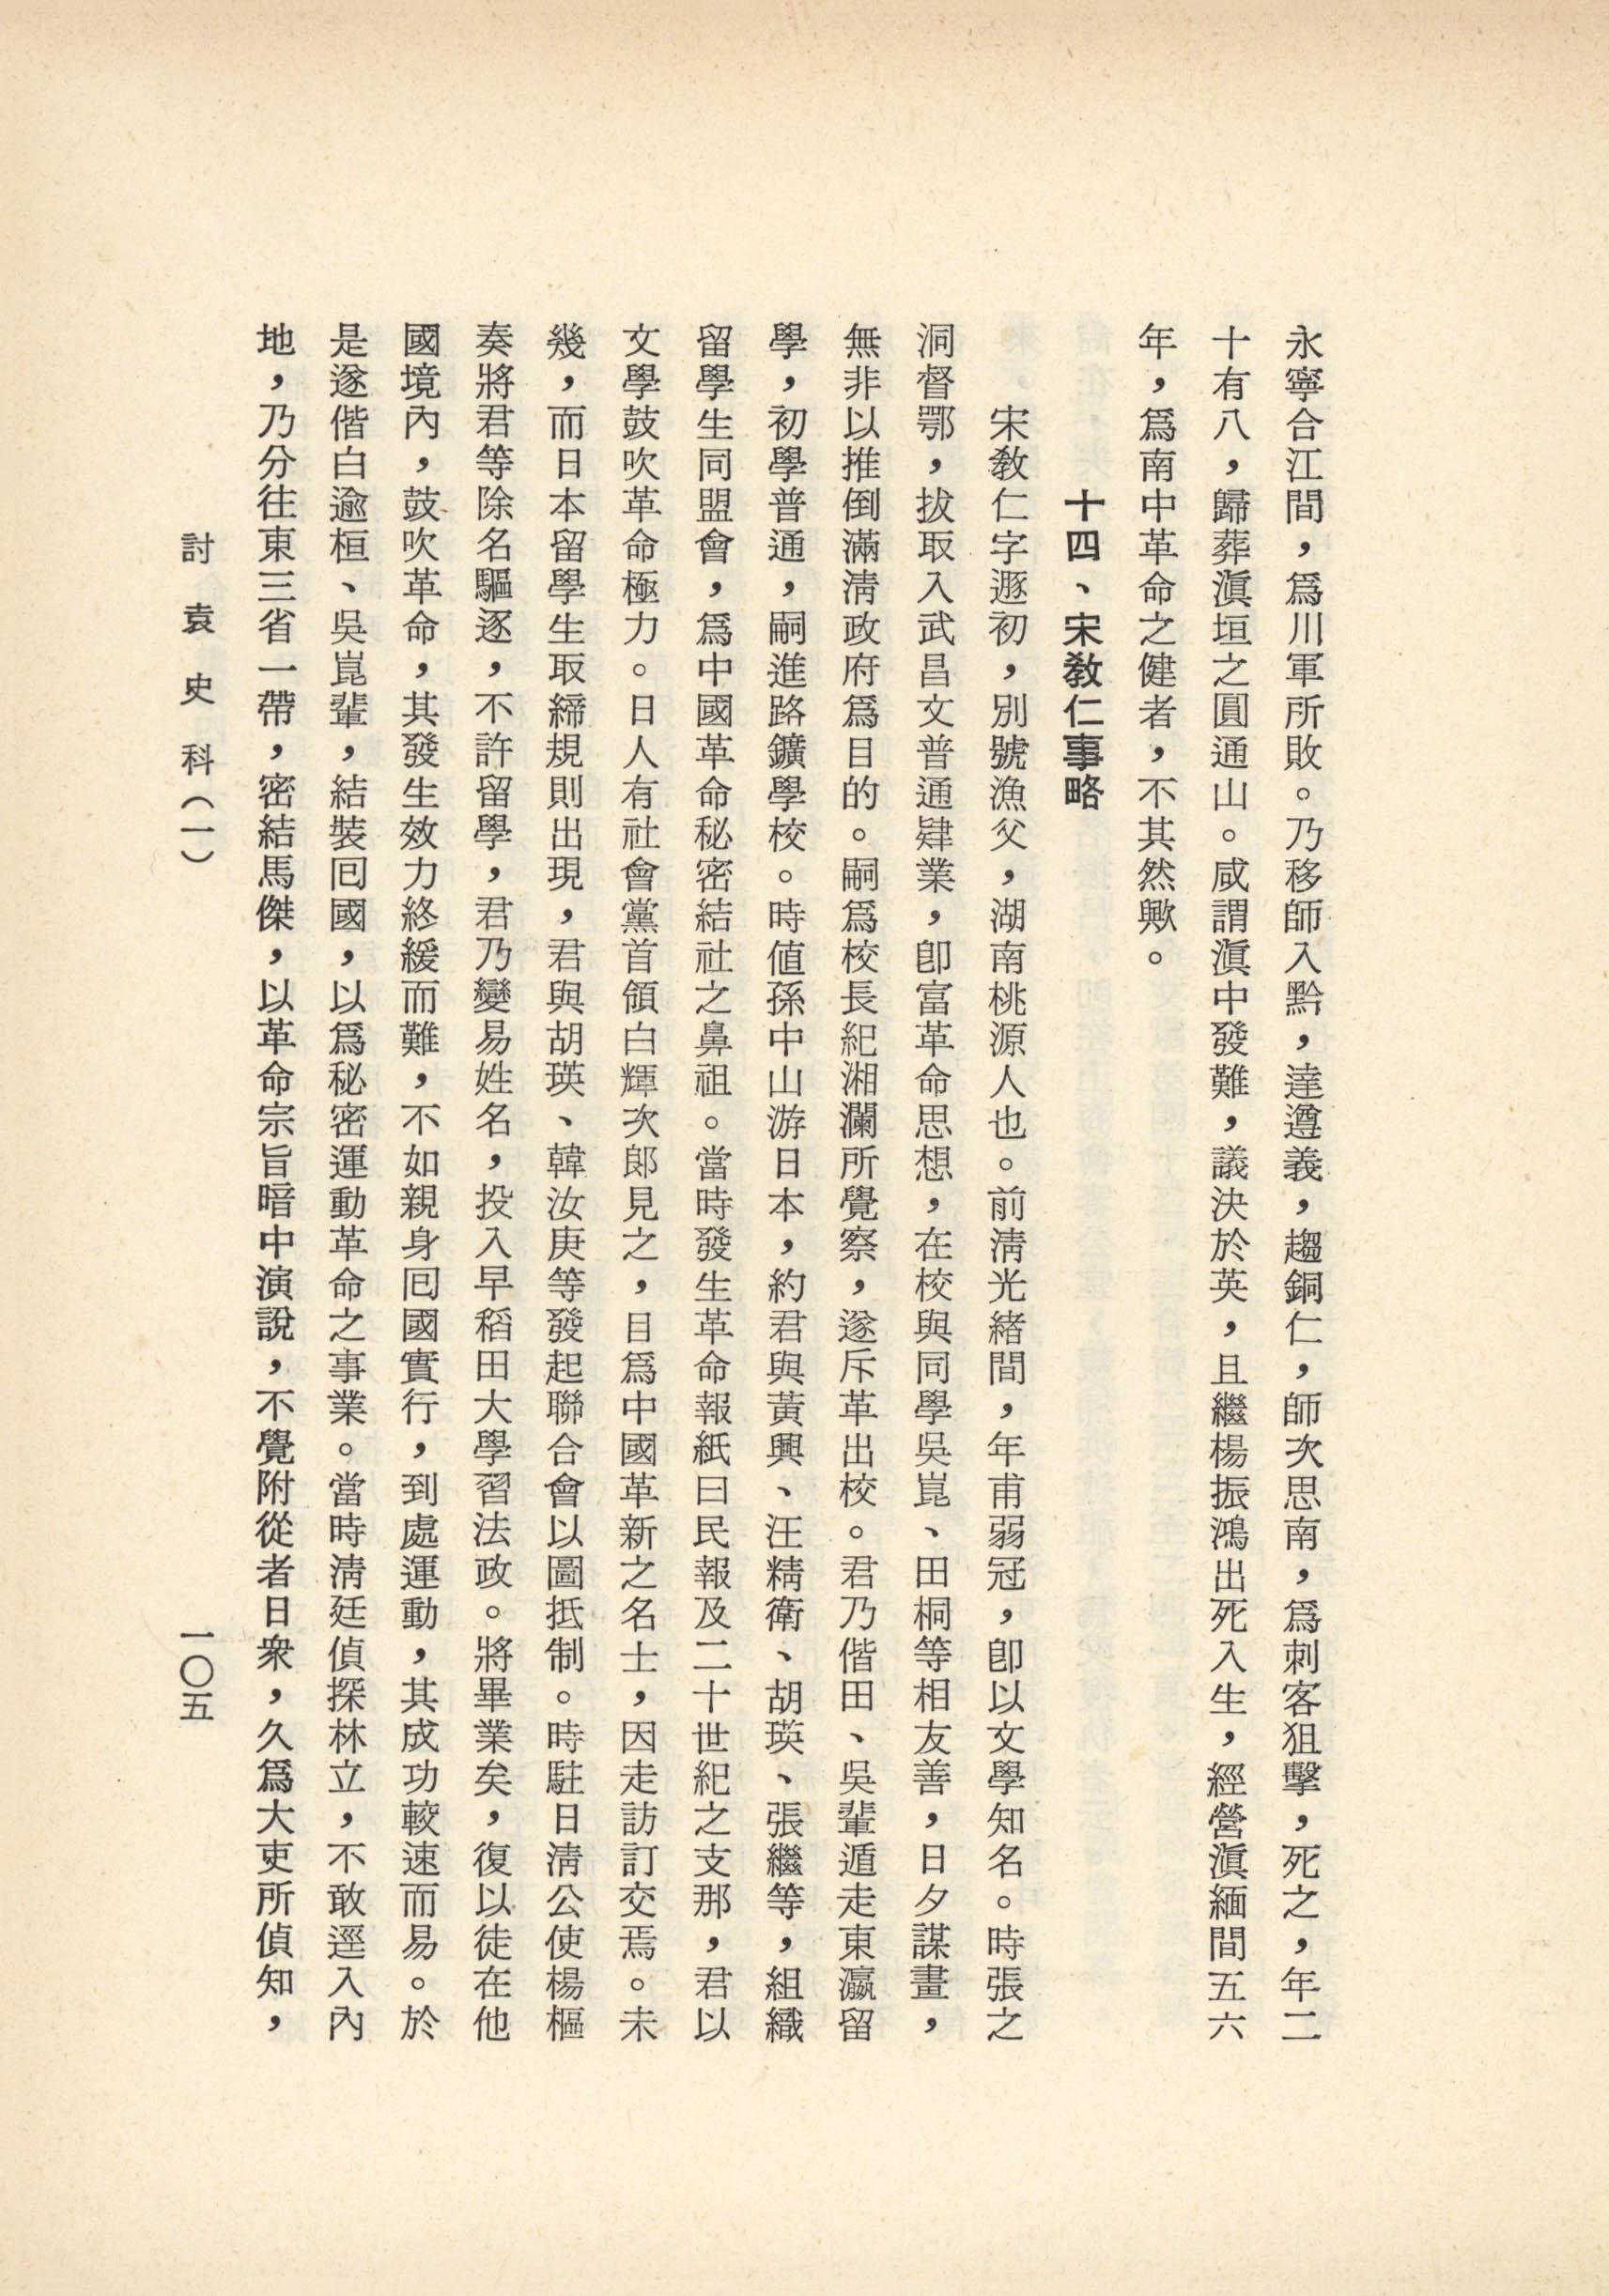 永寧合江間，爲川軍所敗。乃移師入黔，達遵義，趨銅仁，師次思南，爲刺客狙擊，死之，年二
十有八，歸葬滇垣之圓通山。咸謂滇中發難，議決於英，且繼楊振鴻出死入生，經營滇緬間五六
年，爲南中革命之健者，不其然歟。
十四、宋教仁事略
宋教仁字遯初，別號漁父，湖南桃源人也。前淸光緒間，年甫弱冠，卽以文學知名。時張之
洞督鄂，拔取入武昌文普通肄業，卽富革命思想，在校與同學吳崑、田桐等相友善，日夕謀畫，
無非以推倒滿淸政府爲目的。嗣爲校長紀湘瀾所覺察，遂斥革出校。君乃偕田、吳輩遁走東瀛留
學，初學普通，嗣進路鑛學校。時値孫中山游日本，約君與黃興、汪精衛、胡瑛、張繼等，組織
留學生同盟會，爲中國革命秘密結社之鼻祖。當時發生革命報紙曰民報及二十世紀之支那，君以
文學鼓吹革命極力。日人有社會黨首領白輝次郎見之，目爲中國革新之名士，因走訪訂交焉。未
幾，而日本留學生取締規則出現，君與胡瑛、韓汝庚等發起聯合會以圖抵制。時駐日淸公使楊樞
奏將君等除名驅逐，不許留學，君乃變易姓名，投入早稻田大學習法政。將畢業矣，復以徒在他
國境內，鼓吹革命，其發生效力終緩而難，不如親身囘國實行，到處運動，其成功較速而易。於
是遂偕白逾桓、吳崑輩，結裝囘國，以爲秘密運動革命之事業。當時淸廷偵探林立，不敢逕入內
地，乃分往東三省一帶，密結馬傑，以革命宗旨暗中演說，不覺附從者日衆，久爲大吏所偵知，
討袁史料（一）
一〇五